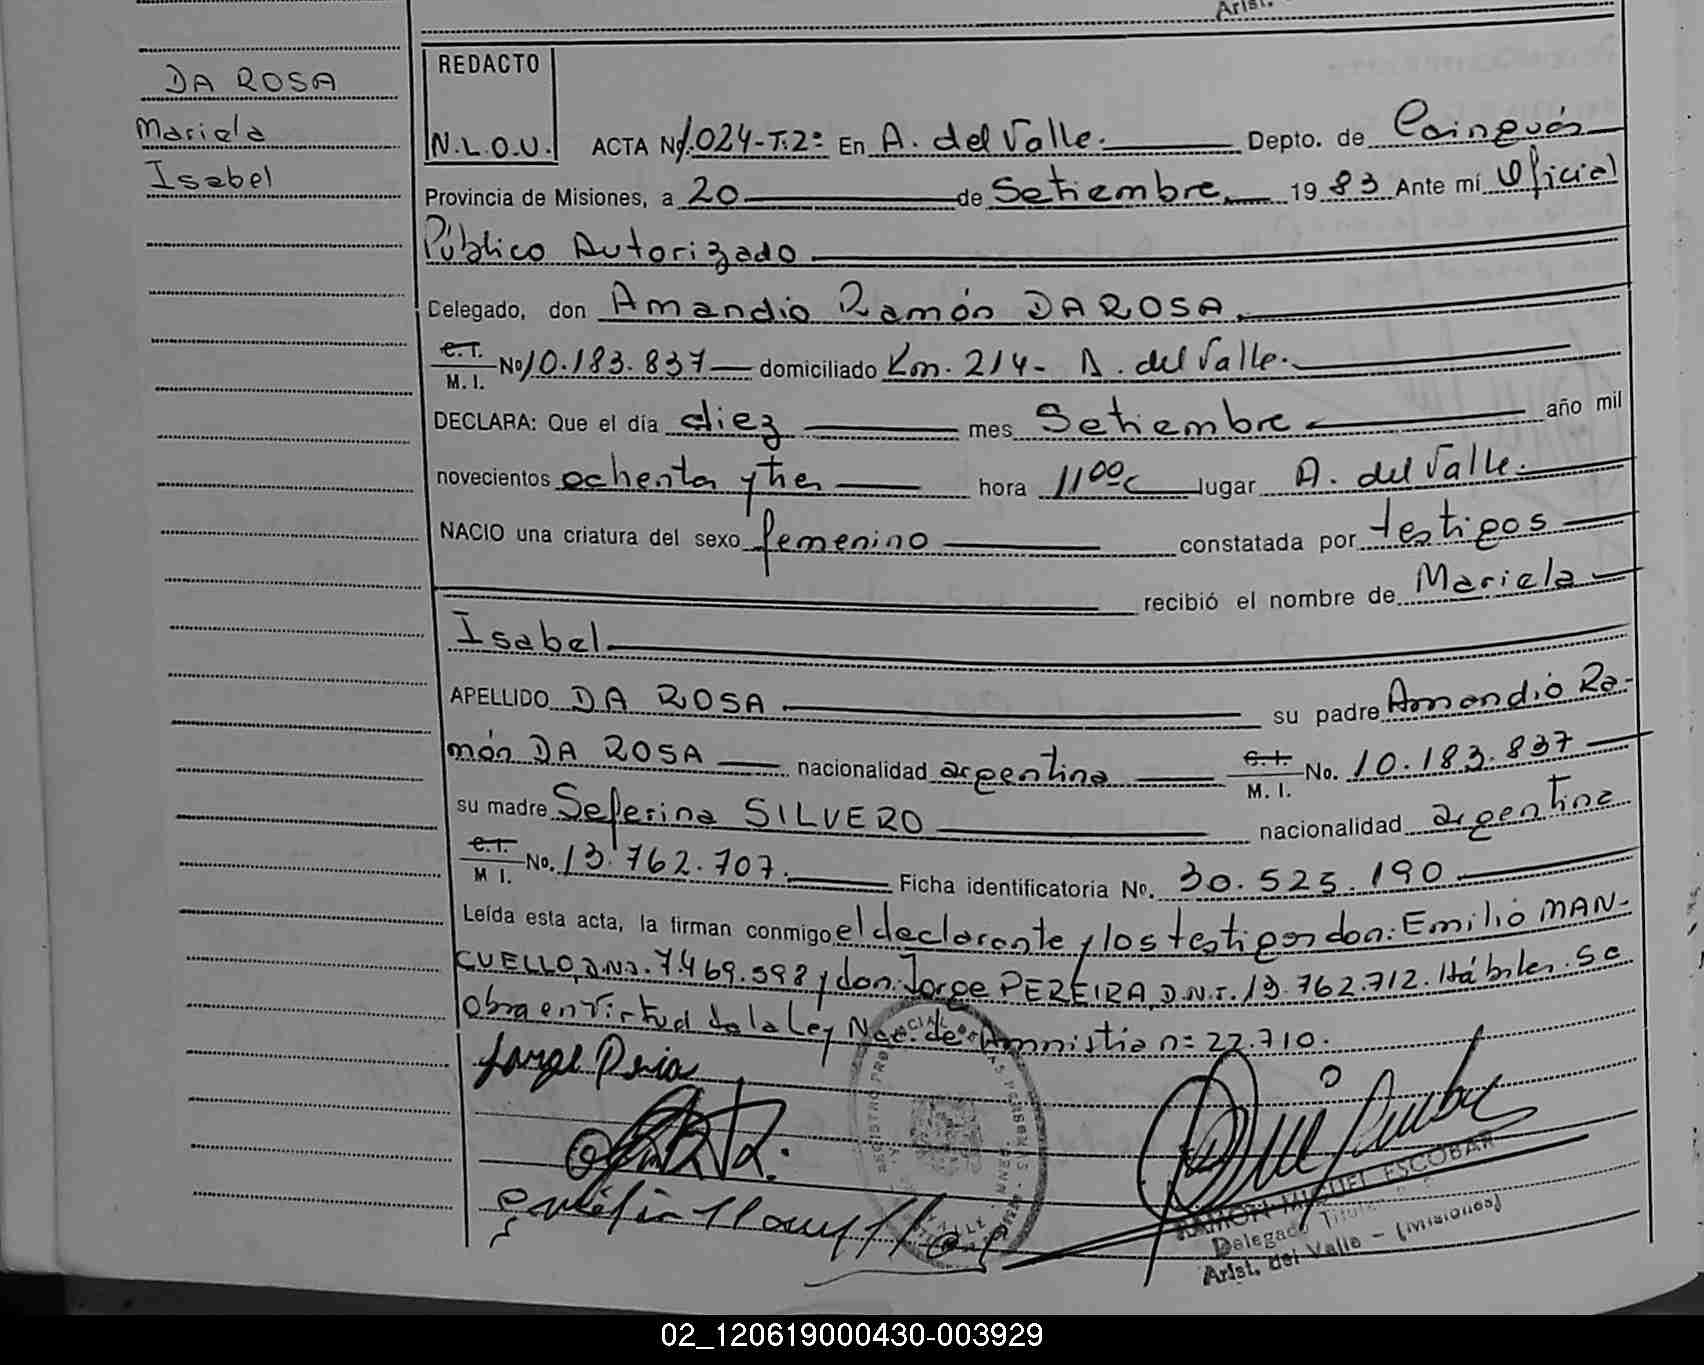 Arist.
DA ROSA
Mariela
Isabel
REDACTO
N.L.O.U.
ACTA Nº 1.024-T.2º En A. del Valle. Depto. de Cainguás
Provincia de Misiones, a 20 de Setiembre 1983 Ante mí Oficial
Público Autorizado
Delegado, don Amandio Ramón DA ROSA
C.I. M.I. Nº 10.183.837 domiciliado Km. 214- A. del Valle.
DECLARA: Que el día diez mes Setiembre año mil
novecientos ochenta y tres hora 11ºº lugar A. del Valle.
NACIO una criatura del sexo femenino constatada por testigos
recibió el nombre de Mariela
Isabel
APELLIDO DA ROSA su padre Amandio Ra-
món DA ROSA nacionalidad argentina C.I. M.I. No. 10.183.837
su madre Seferina SILVERO nacionalidad argentina
C.I. M I. No. 13.762.707. Ficha identificatoria No. 30.525.190
Leída esta acta, la firman conmigo el declarante y los testigos don: Emilio MAN-
CUELLO, D.N.I. 7.469.598 y don: Jorge PEREIRA, D.N.I. 13.762.712. Hábiles. Se
Obra en virtud de la Ley Nac. de Amnistia nº 22.710.
RAMON MIGUEL ESCOBAR
Delegado Titular
Arist. del Valle - (Misiones)
02_120619000430-003929